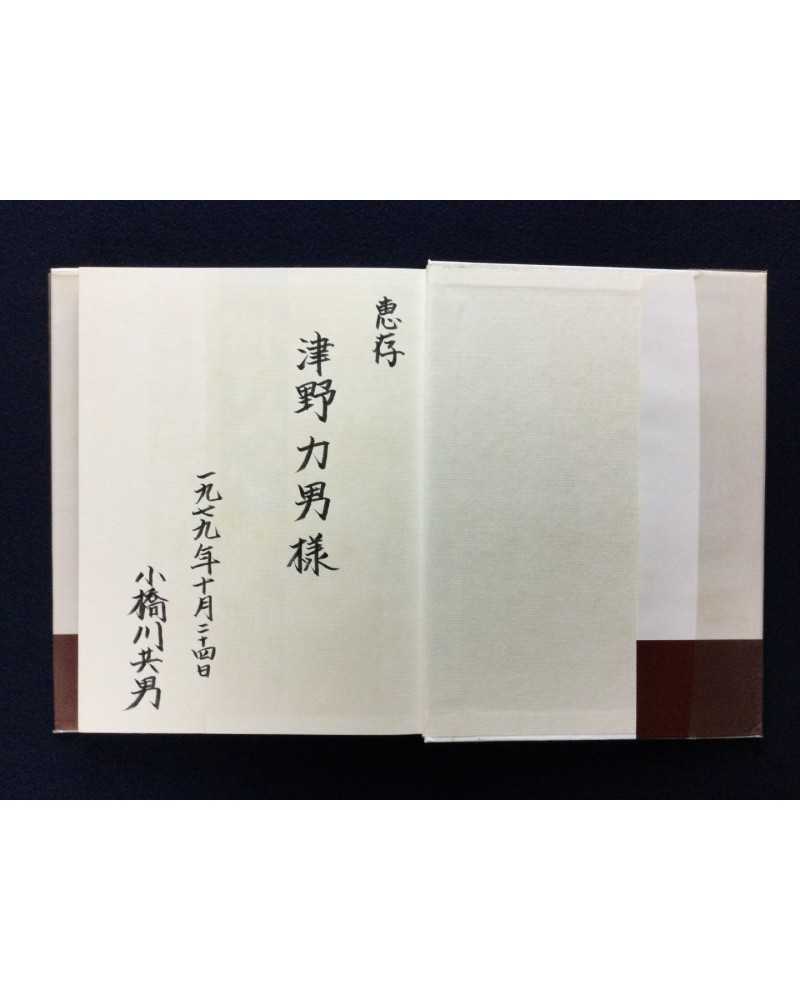 恵存
津野力男様
一九七九年十月二十四日
小橋川共男